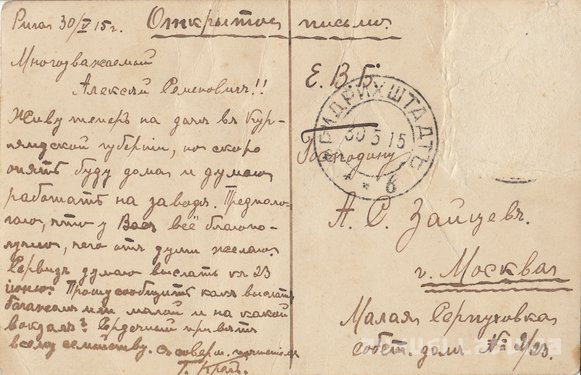 Рига 30/V 15 г. Открытое письмо.
Многоуважаемый
Алексѣй Семеновичъ!!
Живу теперь на дачѣ въ Кур-
ляндской губерніи, но скоро
опять буду дома и думаю
работать на заводѣ. Предпола-
гаю, что у Васъ всё благопо-
лучно, чего отъ души желаю.
Сервизъ думаю выслать къ 23
іюню. Прошу сообщить какъ выслать
багажемъ или малой и на какой
вокзалъ? Сердечный привѣтъ
всему семейству. Съ совер. и.
Г.
Е. В. Б.
Господину
А. С. Зайцевъ.
г. Москва
Малая Серпуховка
собст. домъ № 2/23.
ФРИДРИХШТАДТЪ
30 5 15
* * б